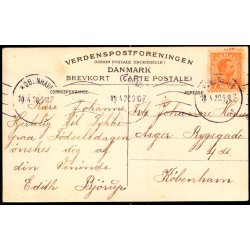 VERDENSPOSTFORENINGEN
(UNION POSTALE UNIVERSELLE)
DANMARK
BREVKORT (CARTE POSTALE)
KORRESPONDANCE
ADRESSE
KØBENHAVN
Kære Johanne
Hjertelig til Lykke
paa Fødselsdagen
ønskes dig af
din Veninde
Edith Bjørup
Frk Johanne Hansen
Asger Rygsgade
København